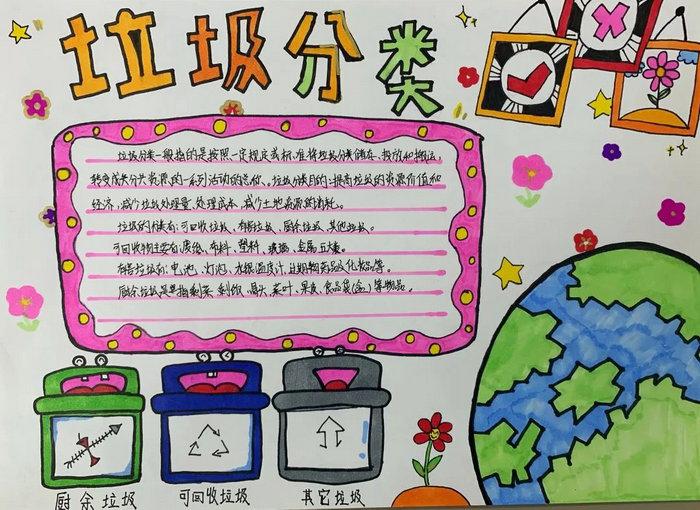 垃圾分类
垃圾分类一般指的是按照一定规定或标准将垃圾分类储存、投放和搬运,
转变成公共资源的一系列活动的总称。垃圾分类目的:提高垃圾的资源价值和
经济,减少垃圾处理量、处理成本,减少土地资源的消耗。
垃圾的种类有:可回收垃圾、有害垃圾、厨余垃圾、其他垃圾。
可回收物主要有:废纸、布料、塑料、玻璃、金属五大类。
有害垃圾有:电池、灯泡、水银温度计、过期药品及化妆品等。
厨余垃圾是指剩菜、剩饭、骨头、茶叶、果皮、食品袋(盒)等物品。
厨余垃圾 可回收垃圾 其它垃圾